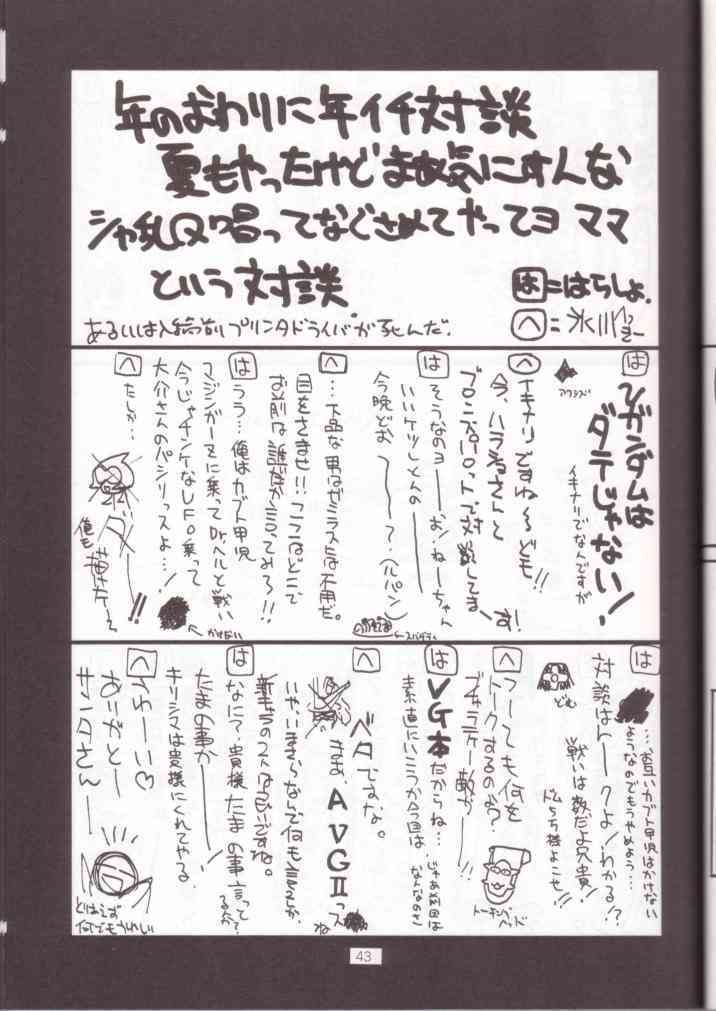 年のおわりに年イチ対談
夏もやったけどまあ気にすんな
シャ乱Q唱ってなぐさめてやってヨ ママ
という対談
は=はらしょ.
へ=氷川
あるいは入稿前プリンタドライバが死んだ.
は
Vガンダムは
ダテじゃない!
イキナリでなんですが
アクシズ
へ
イキナリですね〜ども!!
今、ハラショさんと
ブロンズパロットで対談してま
す!
は
そうなのヨーーお!ねーちゃん
いいケツしとんのーー
今晩どおーーー?(ヘルパン)
へ
…下品な男はゼミラスには不用だ。
目をさませ!!ここはどこで
お前は誰だか言ってみろ!!
は
うう…俺はカブト甲児
マジンガーZに乗ってDr.ヘルと戦い
今じゃチンケなUFO乗って
大介さんのパシリっスよ…!
へ
たしか…
ダーー!!
俺も
は
…、お互いカブト甲児はかけない
ようなのでもうやめよう…
対談はトークよ!わかる!?
戦いは数だよ兄貴!
ドムもち様よこせ!!
どむ
へ
つーても何を
トークするのよ?
ブチャラティー敵が
ーー!!
トーキングヘッド
は
VG本だからね…
素直にいこうか今回は.
じゃあ前回は
なんなのさ
へ
ベタですな。
まま、AVGⅡっス
ね
新キャラの2人は良いですね。
は
なにて?貴様たまの事言って
るか
たまの事かーーー!
キリシマは貴様にくれてやる.
へ
うわーーい♡
ありがとー
サンタさんーーー
とりあえず
何でもうれしい
43